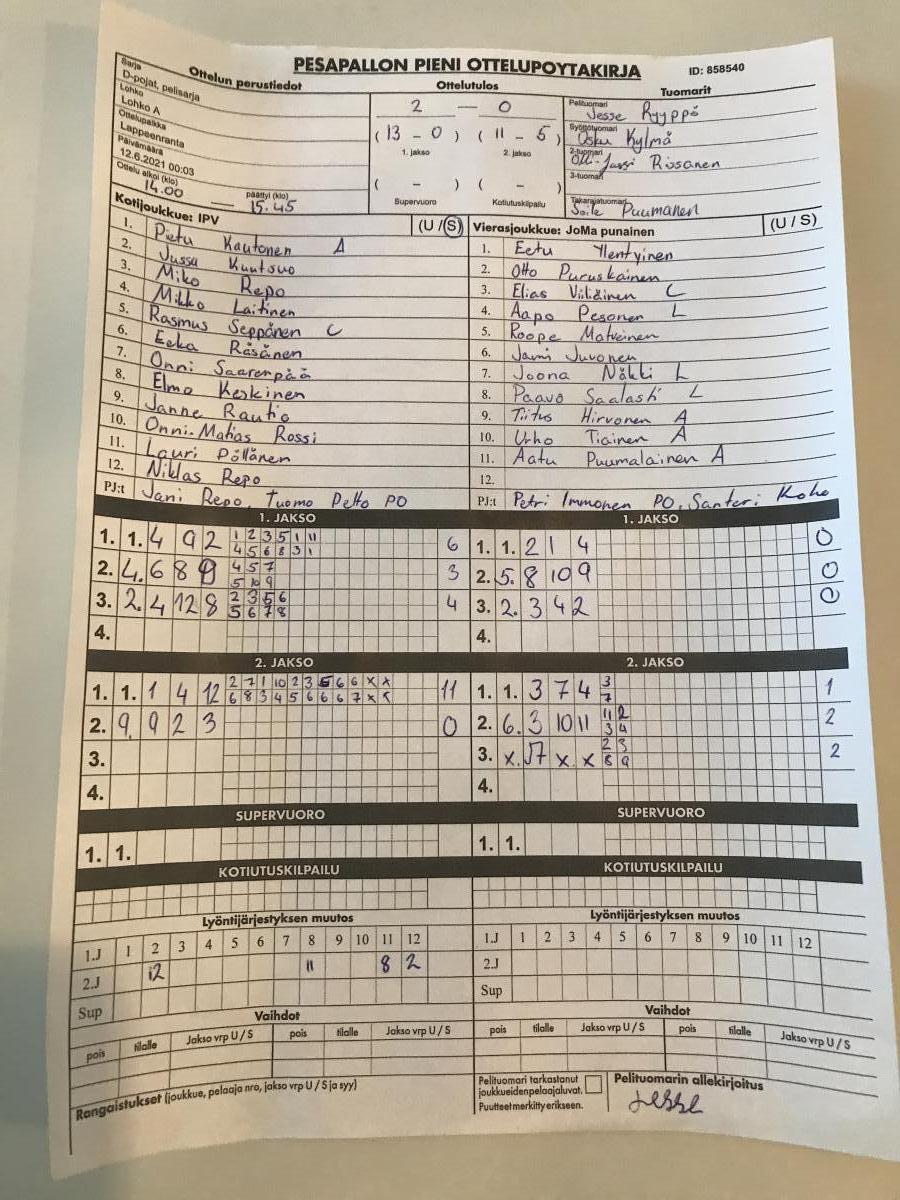 PESAPALLON PIENI OTTELUPOYTAKIRJA
ID: 858540
Ottelun perustiedot
Sarja
D-pojat, pelisarja
Lohko
Lohko A
Ottelupaikka
Lappeenranta
Päivämäärä
12.6.2021 00:03
Ottelu alkoi (klo) päättyi (klo)
14.00 — 15.45
Ottelutulos
2 — 0
(13 - 0) (11 - 5)
1. jakso 2. jakso
( - ) ( - )
Supervuoro Kotiutuskilpailu
Tuomarit
Pelituomari
Jesse Ryyppö
Syöttötuomari
Osku Kylmä
2-tuomari
Olli-Jussi Rissanen
3-tuomari
Takarajatuomari
Soile Puumanen
Kotijoukkue: IPV (U / S)
1. Pietu Kautonen A
2. Jussu Kuutsuo
3. Miko Repo
4. Mikko Laitinen
5. Rasmus Seppänen C
6. Eeka Räsänen
7. Onni Saarenpää
8. Elmo Keskinen
9. Janne Rautio
10. Onni-Matias Rossi
11. Lauri Pöllänen
12. Niklas Repo
PJ:t Jani Repo, Tuomo Peltto PO
Vierasjoukkue: JoMa punainen (U / S)
1. Eetu Ylentyinen
2. Otto Puruskainen
3. Elias Viliäinen C
4. Aapo Pesonen L
5. Roope Matveinen
6. Jami Juvonen
7. Joona Näkki L
8. Paavo Saalasti L
9. Tiitus Hirvonen A
10. Urho Tiainen A
11. Aatu Puumalainen A
12.
PJ:t Petri Immonen PO, Santeri Koho
1. JAKSO
1. 1. 4 9 2 1 2 3 5 1 11 6
4 5 6 8 3 1
2. 4. 6 8 9 4 5 7 3
5 10 9
3. 2. 4 12 8 2 3 5 6 4
5 6 7 8
4.
1. JAKSO
1. 1. 2 1 4 0
2. 5. 8 10 9 0
3. 2. 3 4 2 0
4.
2. JAKSO
1. 1. 1 4 12 2 7 1 10 2 3 5 6 6 x x 11
6 8 3 4 5 6 6 6 7 x x
2. 9. 9 2 3 0
3.
4.
2. JAKSO
1. 1. 3 7 4 3 1
7
2. 6. 3 10 11 11 2 2
3 4
3. x. 7 x x 2 3 2
8 9
4.
SUPERVUORO
1. 1.
SUPERVUORO
1. 1.
KOTIUTUSKILPAILU
KOTIUTUSKILPAILU
Lyöntijärjestyksen muutos
1.J 1 2 3 4 5 6 7 8 9 10 11 12
2.J 12 11 8 2
Sup
Lyöntijärjestyksen muutos
1.J 1 2 3 4 5 6 7 8 9 10 11 12
2.J
Sup
Vaihdot
pois tilalle Jakso vrp U / S pois tilalle Jakso vrp U / S
Vaihdot
pois tilalle Jakso vrp U / S pois tilalle Jakso vrp U / S
Rangaistukset (joukkue, pelaaja nro, jakso vrp U / S ja syy)
Pelituomari tarkastanut
joukkueiden pelaajaluvat.
Puutteet merkitty erikseen.
Pelituomarin allekirjoitus
Jesse